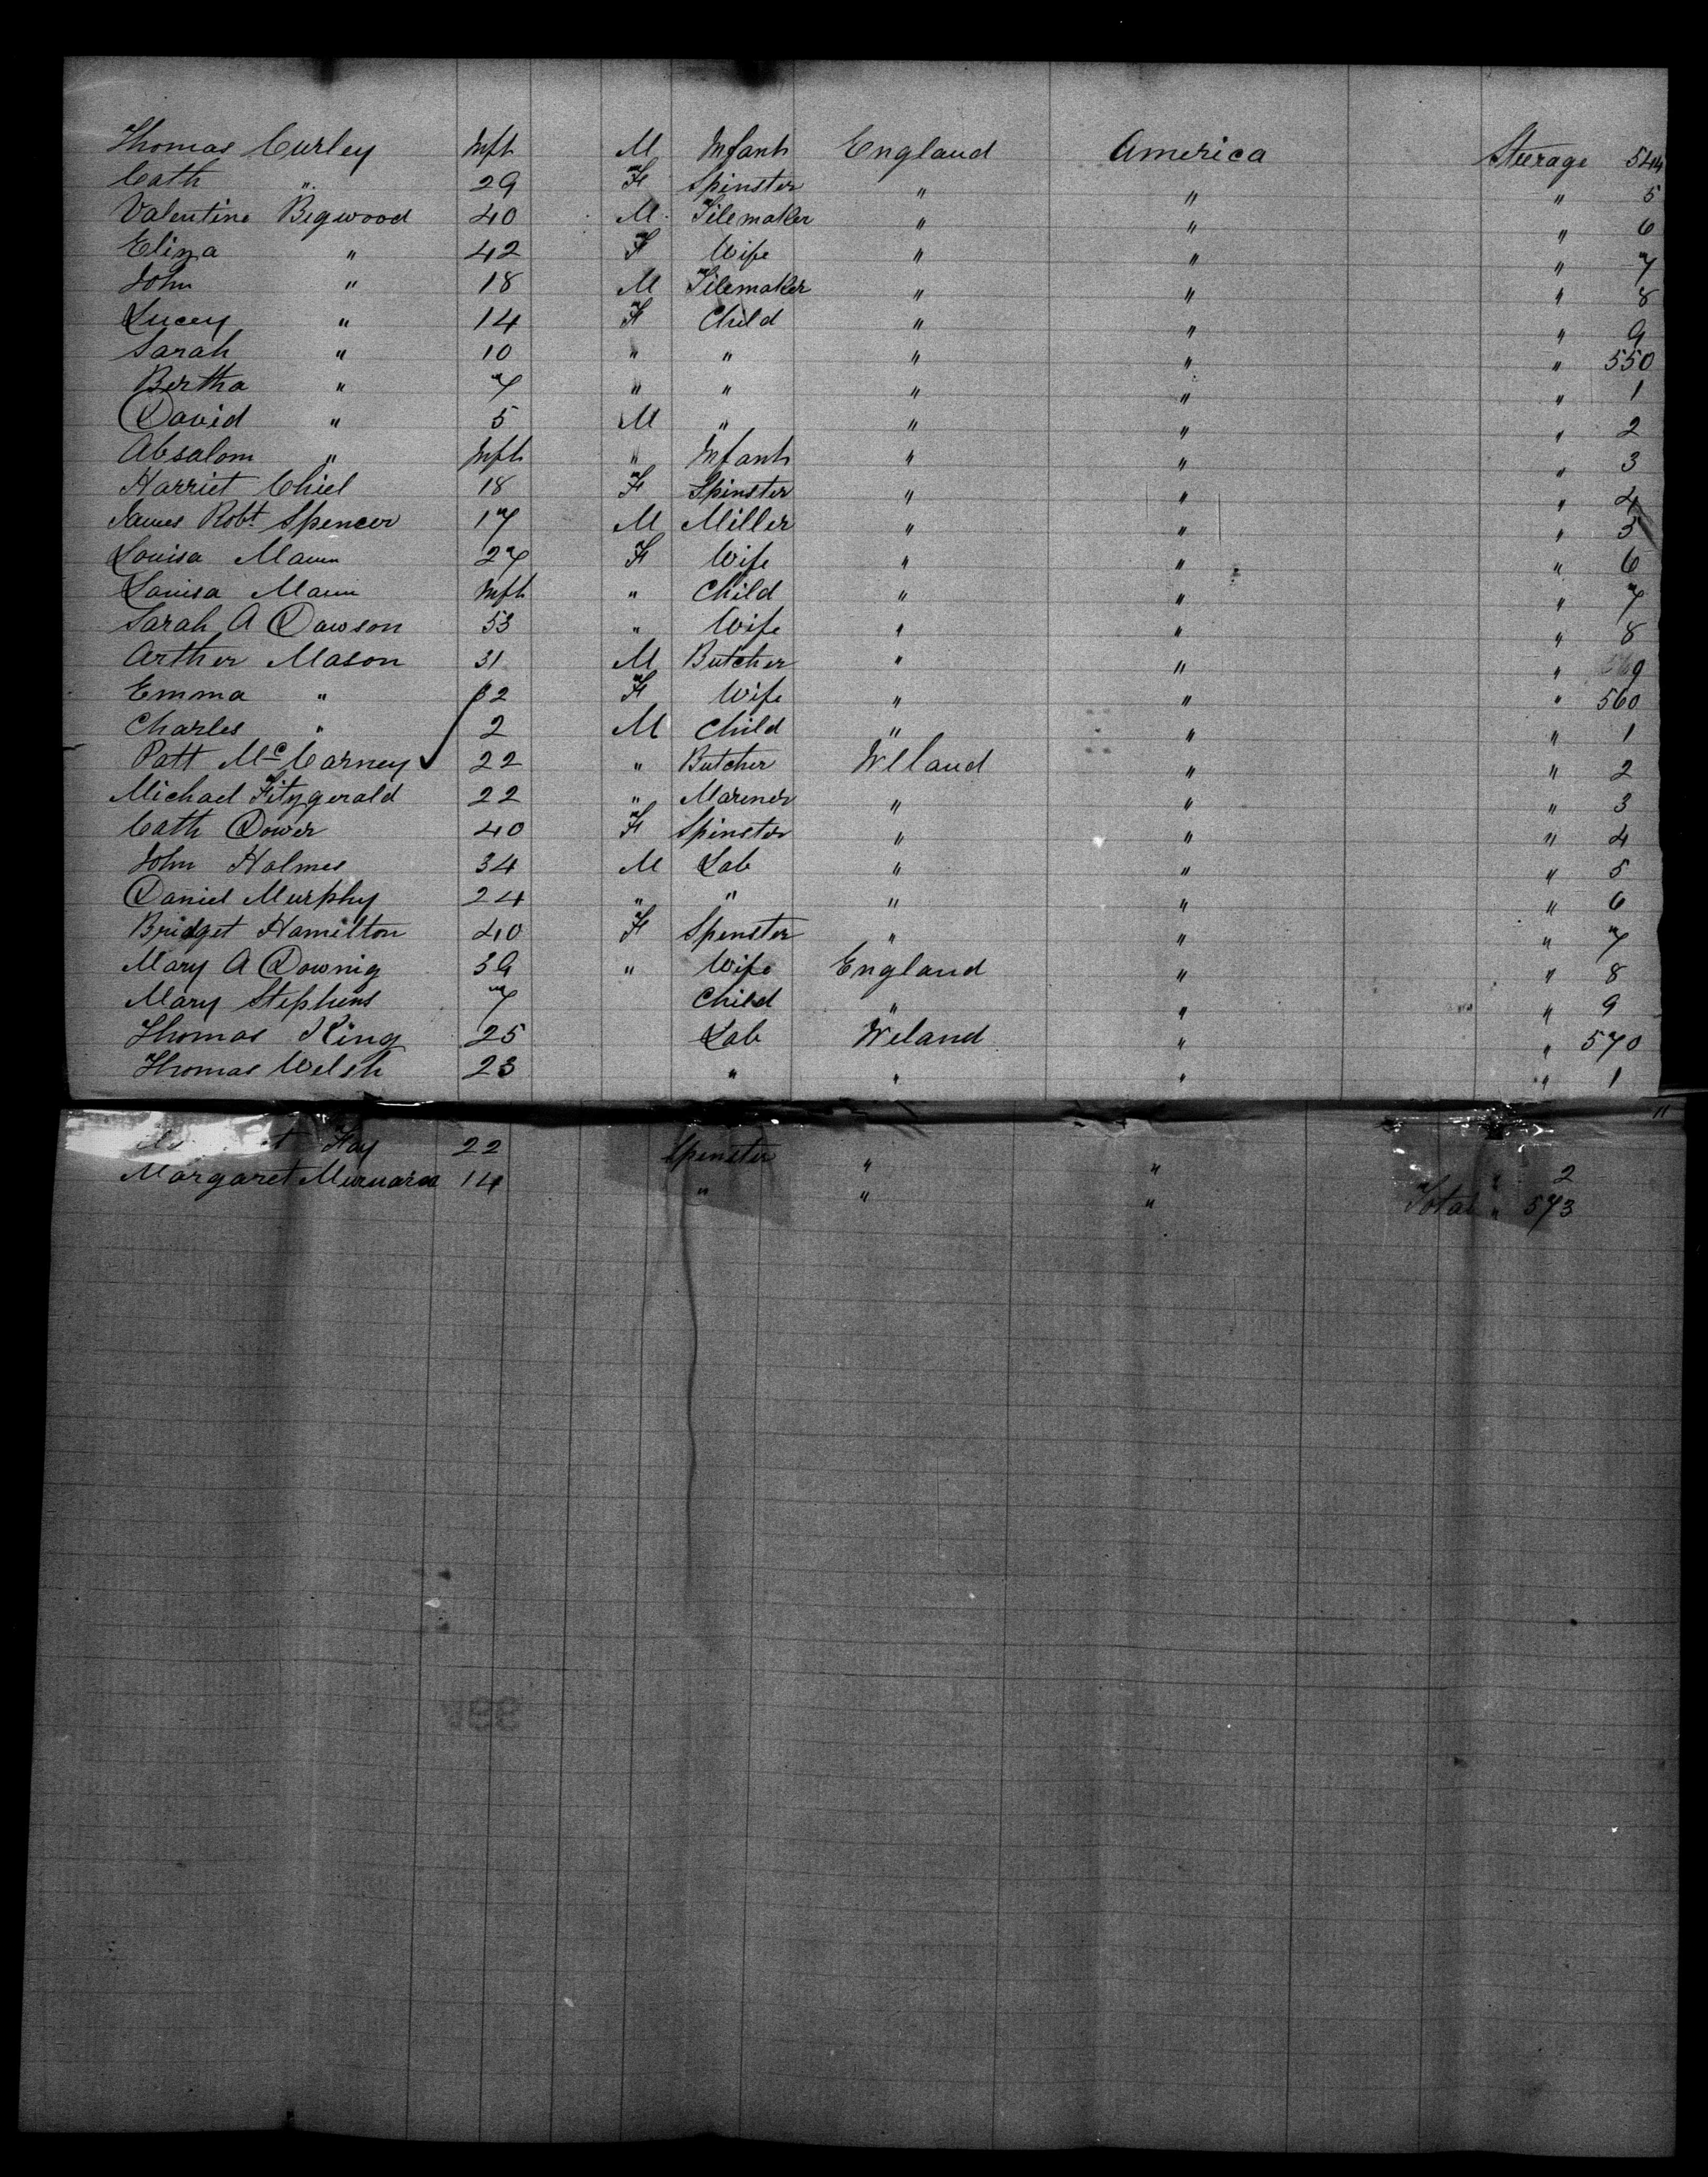 Thomas Curley Inft M Infant England America Steerage 544
Cath " 29 F Spinster " " " 5
Valentine Bigwood 40 M Tilemaker " " " 6
Eliza " 42 F Wife " " " 7
John " 18 M Tilemaker " " " 8
Lucey " 14 F Child " " " 9
Sarah " 10 " " " " " 550
Bertha " 7 " " " " " 1
David " 5 M " " " " 2
Absalom " Inft " Infant " " " 3
Harriet Chiel 18 F Spinster " " " 4
James Robt Spencer 17 M Miller " " " 5
Louisa Mann 27 F Wife " " " 6
Louisa Mann Inft " Child " " " 7
Sarah A Dawson 53 " Wife " " " 8
Arther Mason 31 M Butcher " " " 9
Emma " 32 F Wife " " " 560
Charles " 2 M Child " " " 1
Patt McCarney 22 " Butcher Ireland " " 2
Michael Fitzgerald 22 " Marener " " " 3
Cath Dower 40 F Spinster " " " 4
John Holmes 34 M Lab " " " 5
Daniel Murphy 24 " " " " " 6
Bridget Hamilton 40 F Spenster " " " 7
Mary A Downig 39 " Wife England " " 8
Mary Stephens 7 Child " " " 9
Thomas King 25 Lab Ireland " " 570
Thomas Welsh 23 " " " " 1
Fay 22 Spenster " " " 2
Margaret 14 " " " Total " 573